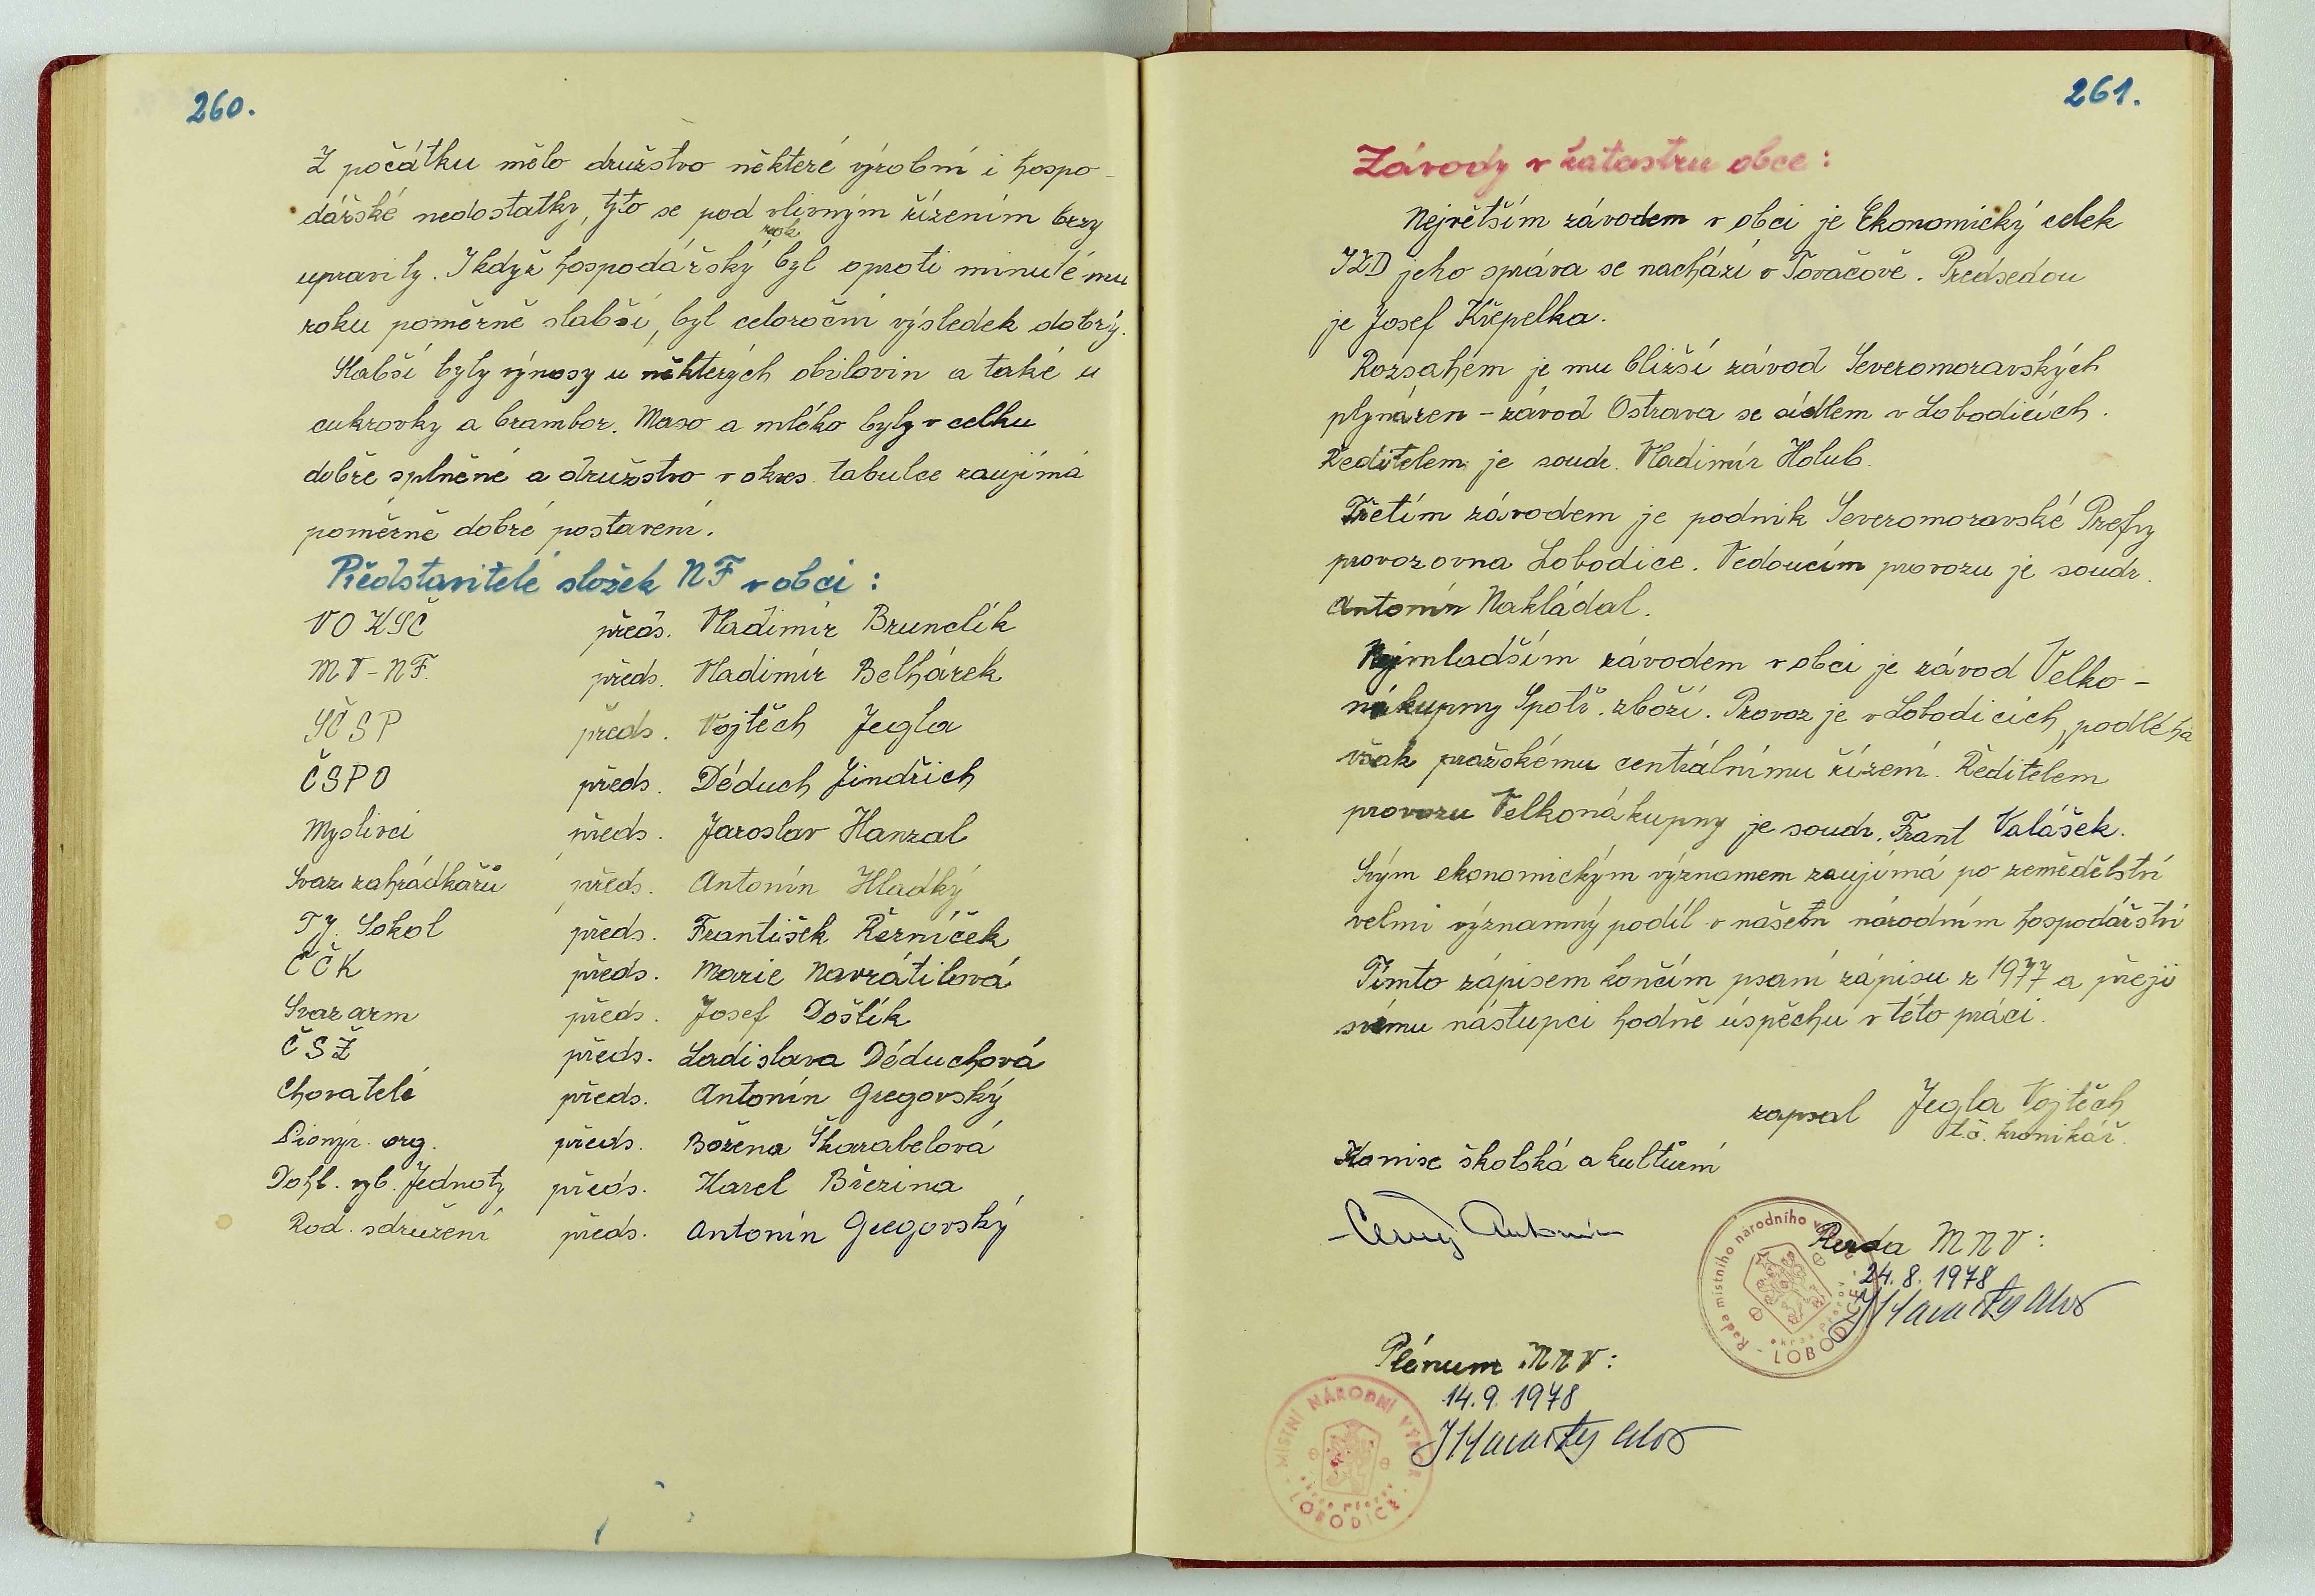 260.
Z počátku mělo družstvo některé výrobní i hospo-
dářské nedostatky, tyto se pod vlivným řízením brzy
rok
upravily. I když hospodářský byl oproti minulému
roku poměrně slabší, byl celoroční výsledek dobrý.
Slabší byly výnosy u některých obilovin a také u
cukrovky a brambor. Maso a mléko byly v celku
dobře splněné a družstvo v okres. tabulce zaujímá
poměrně dobré postavení.
Představitelé složek NF v obci :
VO KSČ předs. Vladimír Brunclík
MV-NF. předs. Vladimír Belhárek
SČSP předs. Vojtěch Jegla
ČSPO předs. Déduch Jindřich
Myslivci předs. Jaroslav Hanzal
Svaz zahrádkářů předs. Antonín Hladký
TJ. Sokol předs. František Řezníček
ČČK předs. Marie Navrátilová
Svazarm předs. Josef Došlík
ČSŽ předs. Ladislava Déduchová
Chovatelé předs. Antonín Gregovský
Pionýr. org. předs. Božena Škarabelová
Dohl. výb. Jednoty předs. Karel Březina
Rod. sdružení předs. Antonín Gregovský
261.
Závody v katastru obce :
Největším závodem v obci je Ekonomický celek
JZD jeho správa se nachází v Tovačově. Předsedou
je Josef Křepelka.
Rozsahem je mu bližší závod Severomoravských
plynáren - závod Ostrava se sídlem v Lobodicích.
Ředitelem je soudr. Vladimír Holub.
Třetím závodem je podnik Severomoravské Prefy
provozovna Lobodice. Vedoucím provozu je soudr.
Antonín Nakládal.
Nejmladším závodem v obci je závod Velko-
nákupny Spotř. zboží. Provoz je v Lobodicích, podléhá
však pražskému centrálnímu řízení. Ředitelem
provozu Velkonákupny je soudr. Frant Valášek.
Svým ekonomickým významem zaujímá po zemědělství
velmi významný podíl v našem národním hospodářství
Tímto zápisem končím psaní zápisu z 1977 a přeji
svému nástupci hodně úspěchu v této práci.
zapsal Jegla Vojtěch
t.č. kronikář.
Komise školská a kulturní
Antonín
Rada místního národního
okres Přerov
LOBODICE
Rada MNV :
24. 8. 1978
Plénum MNV :
14. 9. 1978
MÍSTNÍ NÁRODNÍ VÝBOR
okres Přerov
LOBODICE